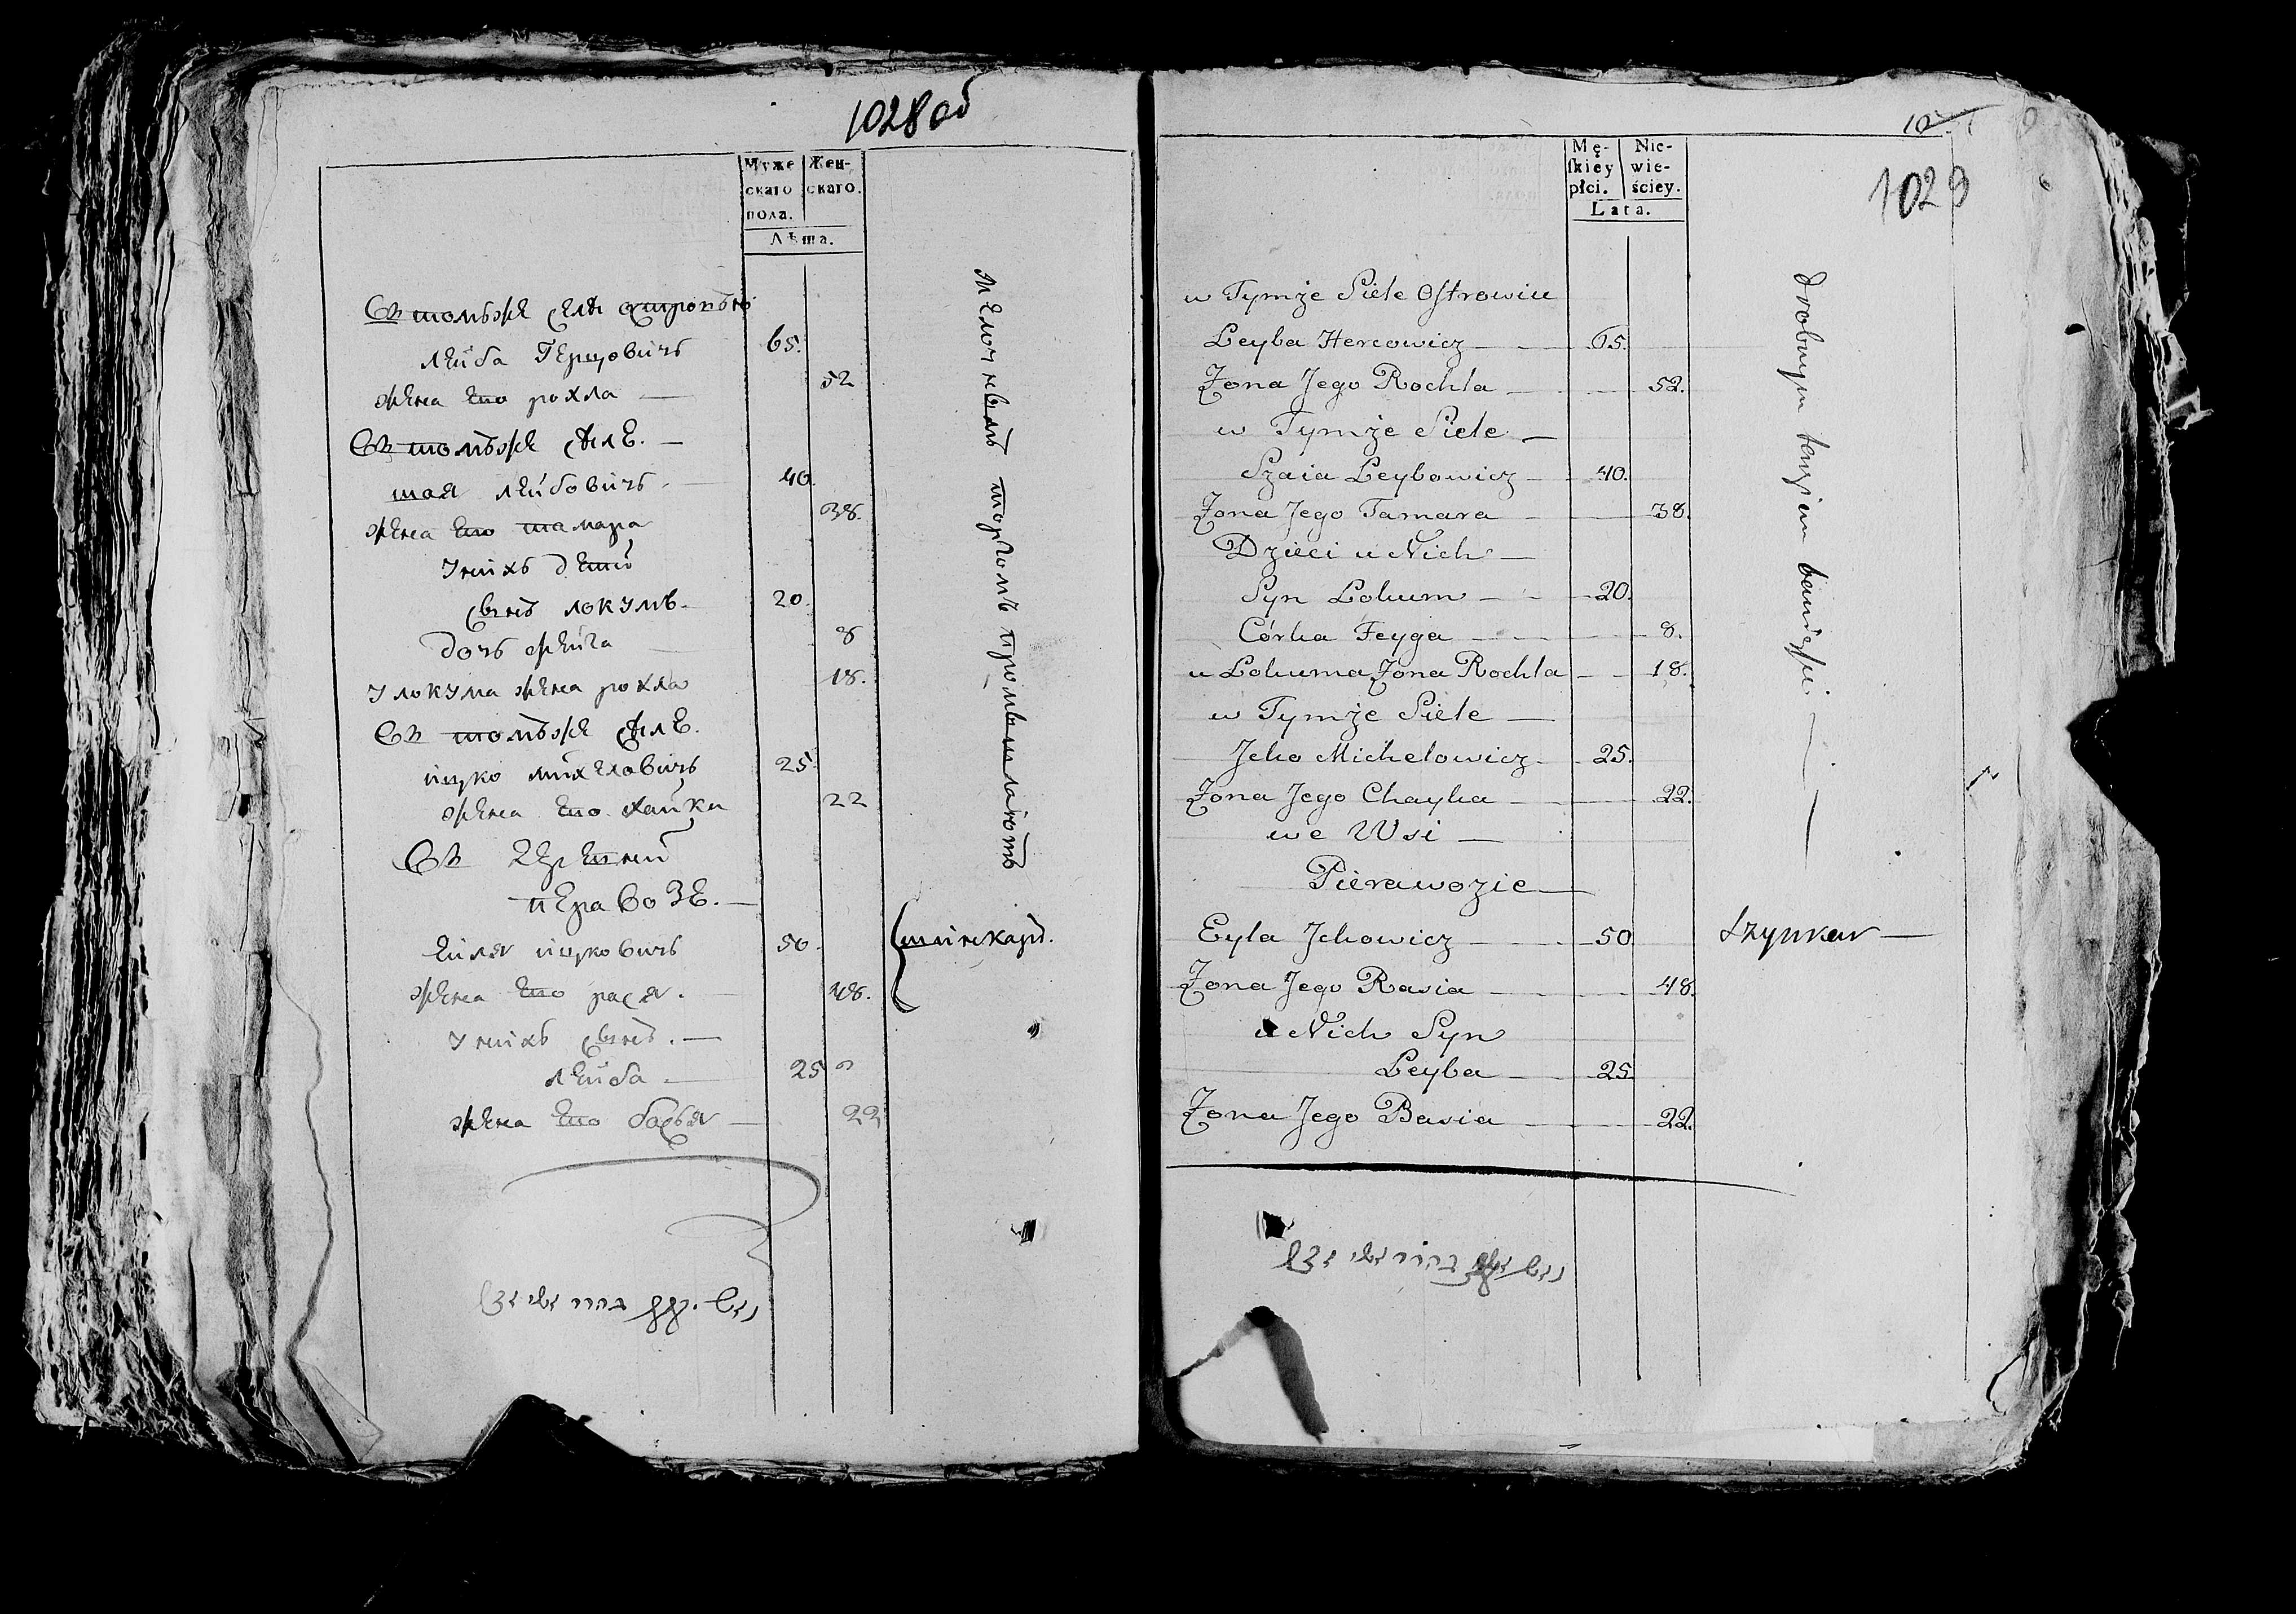 1028 об
Муже Жен-
скаго скаго.
пола.
Лѣта.
Въ томъже селѣ островѣю
лейба Герцовичъ 65.
жена его рохла 52
Въ томъже селѣ.
шая лейбовичъ. 40.
жена его тамара 38.
У нихъ дети
сынъ локумъ. 20.
дочь фейга 8
У локума жена рохла 18.
Въ томъже селѣ.
ицко михеловичъ 25.
жена его хайка 22
Въ деревней
перавозе.
ейля ицковичъ 50.
жена его рася. 48.
У нихъ сынъ.
лейба. 25
жена его бася 22
мелочнымъ торгомъ промышляютъ
шинкаръ.
1029
Mę- Nie-
skiey wie-
płci. ściey.
Lata.
w Tymże Siele Ostrowiu
Leyba Hercowicz 65.
Zona Jego Rochla 52.
w Tymże Siele
Szaia Leybowicz 40.
Zona Jego Tamara 38.
Dzieci u Nich
Syn Lokum 20.
Córka Feyga 8.
u Lokuma Zona Rochla 18.
w Tymże Siele
Jcko Michelowicz 25.
Zona Jego Chayka 22.
we Wsi
Pierawozie
Eyla Jckowicz 50
Zona Jego Rasia 48.
u Nich Syn
Leyba 25.
Zona Jego Basia 22.
drobnym
Szynkar